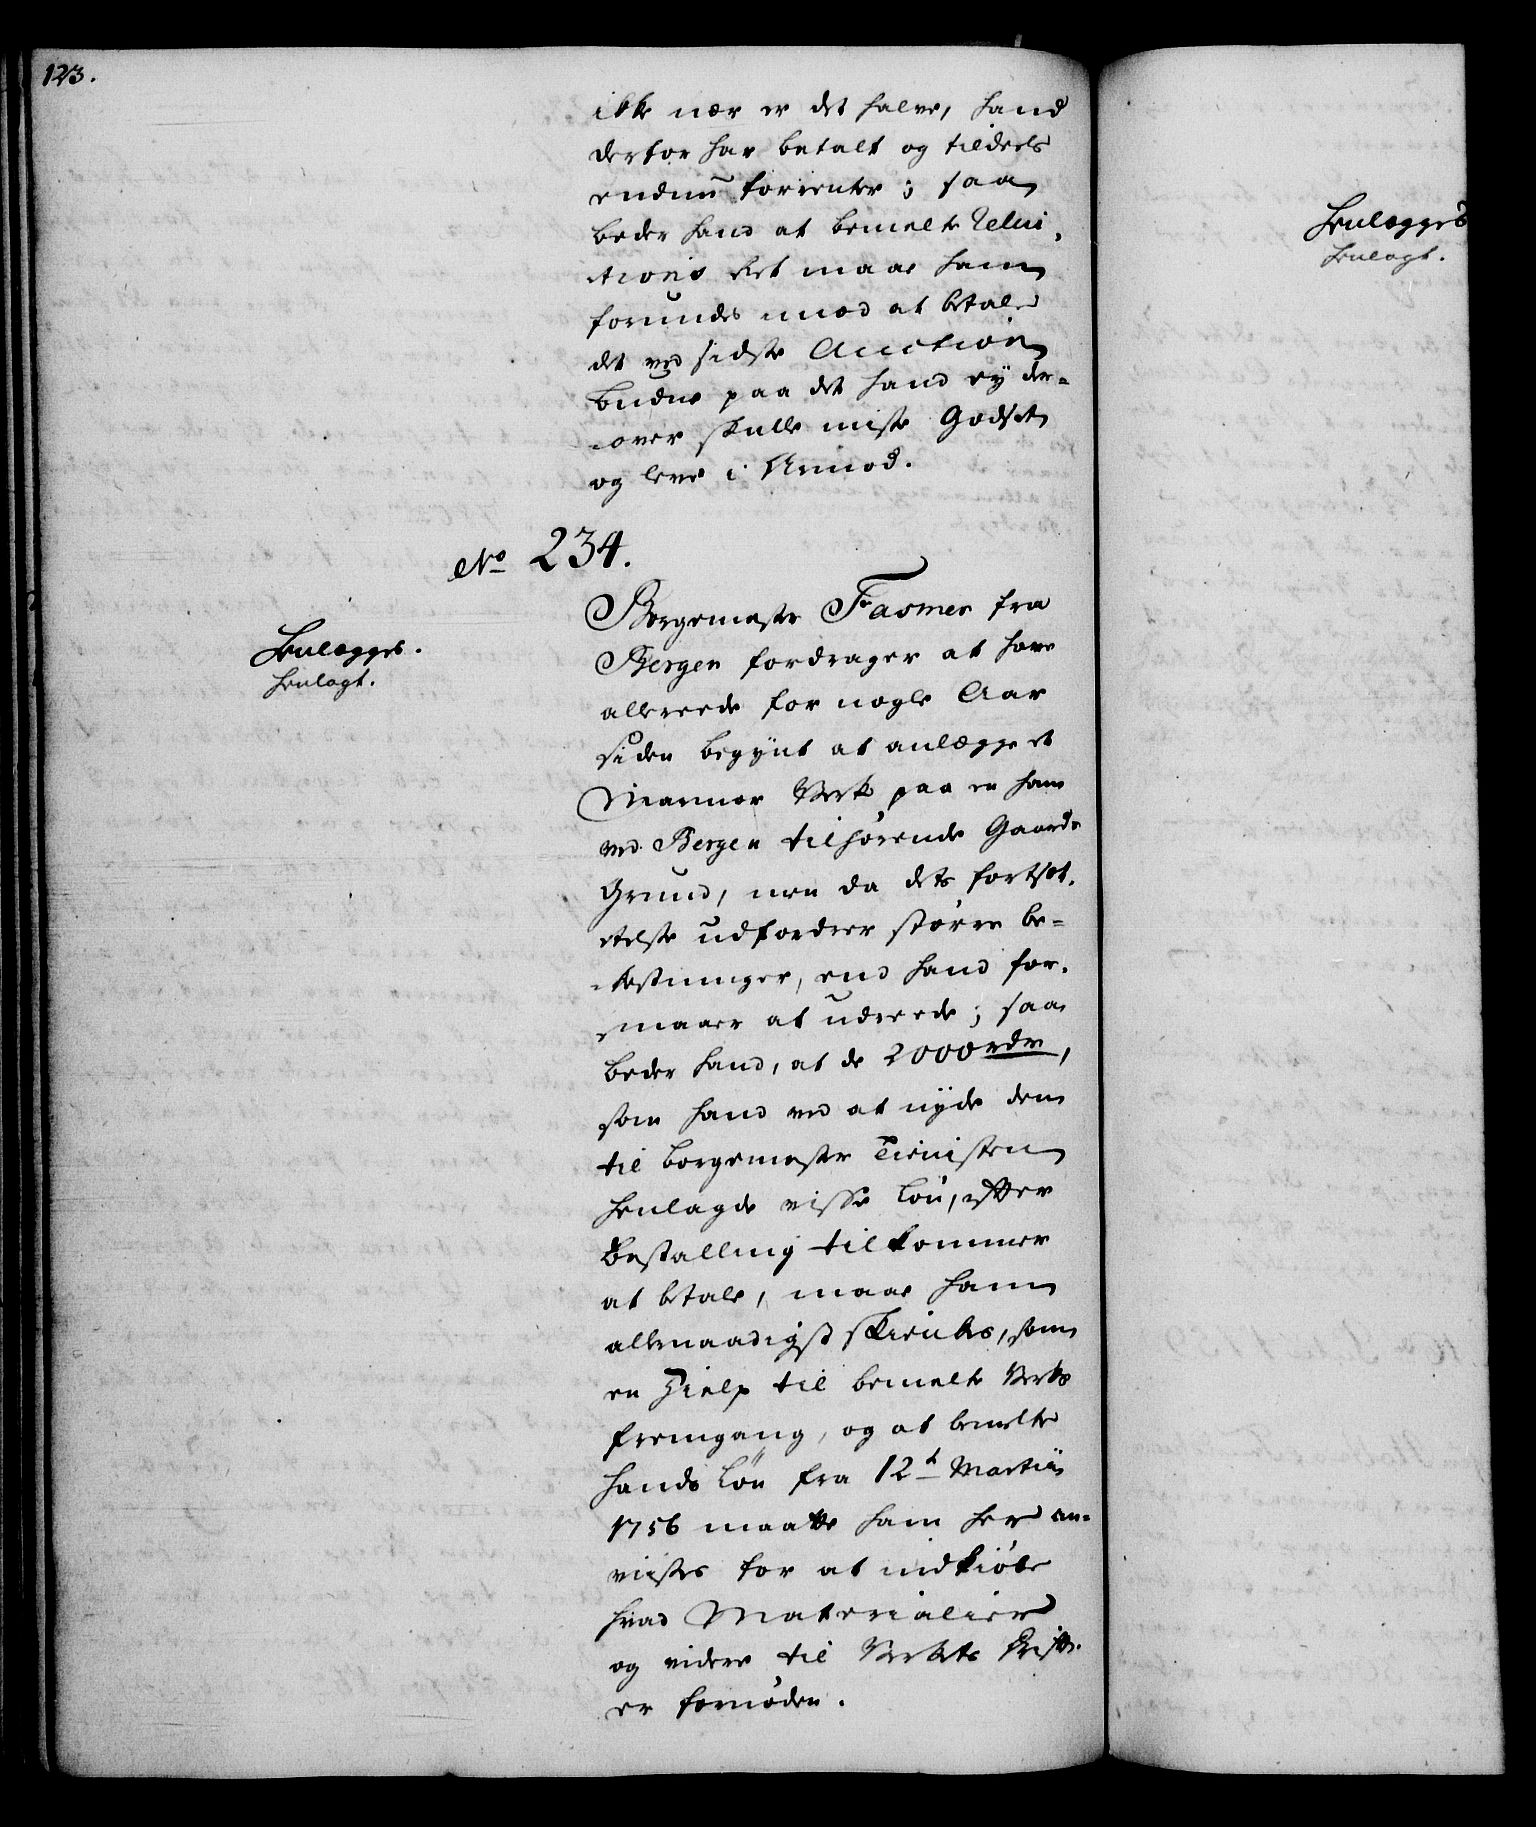 123.
ikke nær er det halve, hand
derfor har betalt og tildeels
endnu forrenter; saa
beder hand at bemelte Relui-
tions Ret maae ham
forundes mod at betale
det ved sidste Auction
budne paa det hand ey der-
over skulle miste Godset
og leve i Armod.
No 234.
Borgemester Fasmer fra
Bergen fordrager at have
Henlægges.
Henlagt.
allereede for nogle Aar
siden begynt at anlægge et
Marmor Verk paa en ham
ved Bergen tilhørende Gaards
Grund, men da dets fortset-
telse udfordrer større be-
kostninger, end hand for-
maaer at udreede; saa
beder hand, at de 2000 rdr,
som hand ved at nyde dem
til borgemester Tienisten
henlagde visse Løn, efter
Bestalling tilkommer
at betale, maae ham
allernaadigst skienkes, som
en Hielp til bemelte Verks
fremgang, og at bemelte
hands Løn fra 12t Martii
1756 maatte ham her an-
viises for at indkiøbe
hvad Materialier
og videre til Verkets Drift
er fornøden.
Henlægges
Henlagt.